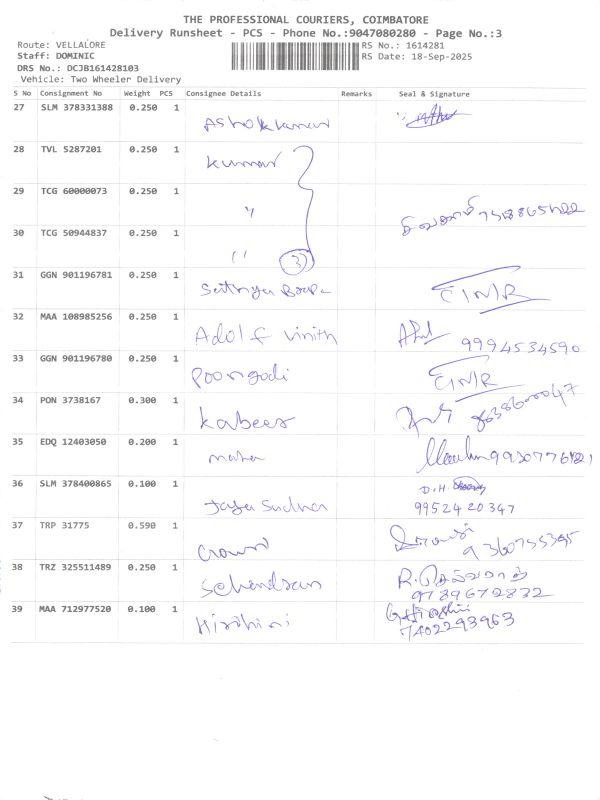 THE PROFESSIONAL COURIERS, COIMBATORE
Delivery Runsheet - PCS - Phone No.:9047080280 - Page No.:3
Route: VELLALORE RS No.: 1614281
Staff: DOMINIC RS Date: 18-Sep-2025
DRS No.: DCJB161428103
Vehicle: Two Wheeler Delivery
S No Consignment No Weight PCS Consignee Details Remarks Seal & Signature
27 SLM 378331388 0.250 1
Ashokkumar
28 TVL 5287201 0.250 1
Kumar
29 TCG 60000073 0.250 1
"
30 TCG 50944837 0.250 1
" 3
31 GGN 901196781 0.250 1
Sathya
32 MAA 108985256 0.250 1
Adolf Vinith 9994534590
33 GGN 901196780 0.250 1
Poongodi
34 PON 3738167 0.300 1
Kabeer
35 EDQ 12403050 0.200 1
36 SLM 378400865 0.100 1
D.H
Jaya Sudha 9952420347
37 TRP 31775 0.590 1
Crown 9360755395
38 TRZ 325511489 0.250 1
R.
9789672832
39 MAA 712977520 0.100 1
Hirihini 7402293963